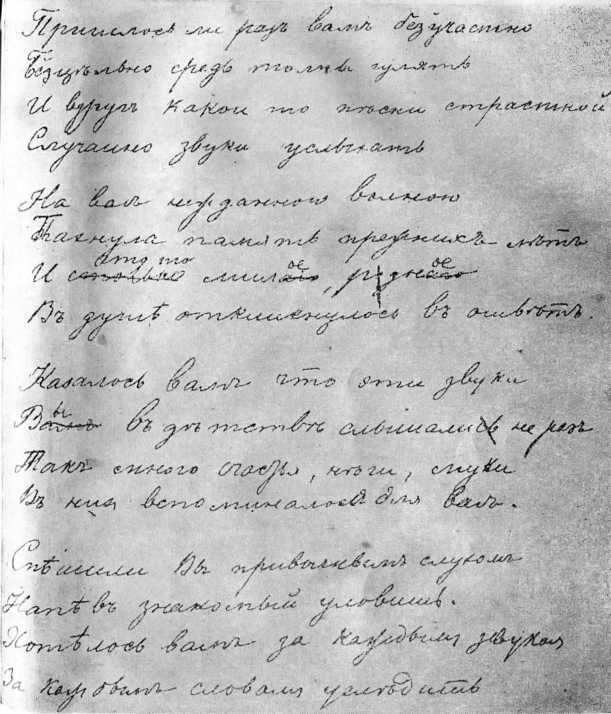 Пришлось ли разъ вамъ безучастно
Безцѣльно средь толпы гулять
И вдругъ какой то пѣсни страстной
Случайно звуки услыхать
На васъ нежданною волною
Пахнула память прежнихъ лѣтъ
И что то милое, родное
Въ душѣ откликнулось въ отвѣтъ.
Казалось вамъ что эти звуки
Вы въ дѣтствѣ слышали не разъ
Такъ много счастья, нѣги, муки
Въ нихъ вспоминалось для васъ.
Спѣшили Вы привычнымъ слухомъ
Напѣвъ знакомый уловить.
Хотѣлось вамъ за каждымъ звукомъ
За каждымъ словомъ услѣдить